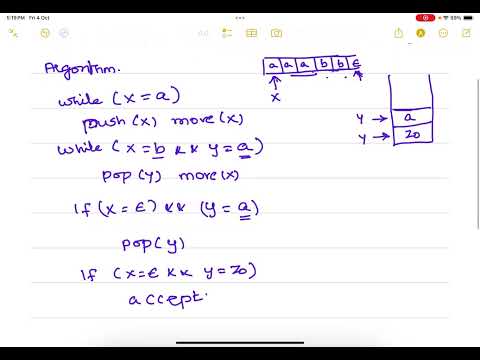 5:19 PM Fri 4 Oct
99%
Argorithm.
a a a b b ε
while (x=a)
x
push(x) move(x)
y → a
y → z0
while (x=b && y=a)
pop(y) move(x)
If (x=ε) && (y=a)
pop(y)
If (x=ε && y=z0)
accept.